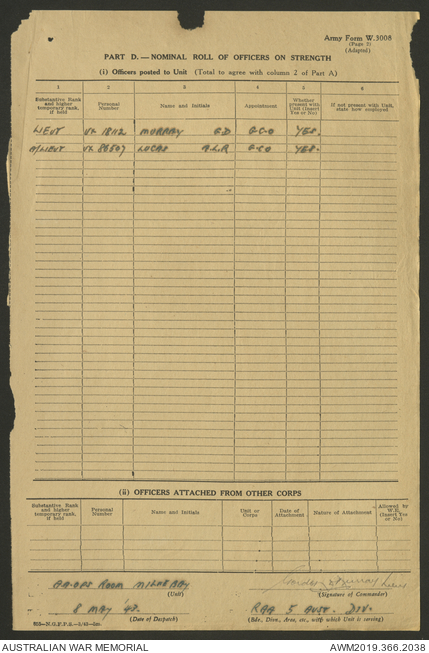 Army Form W.3008
(Page 2)
(Adapted)
PART D.—NOMINAL ROLL OF OFFICERS ON STRENGTH
(i) Officers posted to Unit (To agree with column 2 of Part A)
1 2 3 4 5 6
Substantive Rank and higher temporary rank, if held
Personal Number
Name and Initials
Appointment
Whether present with Unit (Insert Yes or No)
If not present with Unit, state how employed
LIEUT VX 18112 MURRAY G.D G.C.O YES.
A/LIEUT VX 86507 LUCAS A.L.R G.C.O YES.
(ii) OFFICERS ATTACHED FROM OTHER CORPS
Substantive Rank and higher temporary rank, if held
Personal Number
Name and Initials
Unit or Corps
Date of Attachment
Nature of Attachment
Allowed by W.E. (Insert Yes or No)
AA OPS ROOM MILNE BAY
(Unit)
Murray Lieut
(Signature of Commander)
8 MAY '43.
(Date of Despatch)
RAA 5 AUST. DIV.
(Bde., Divn., Area, etc., with which Unit is serving)
AUSTRALIAN WAR MEMORIAL
AWM2019.366.2038